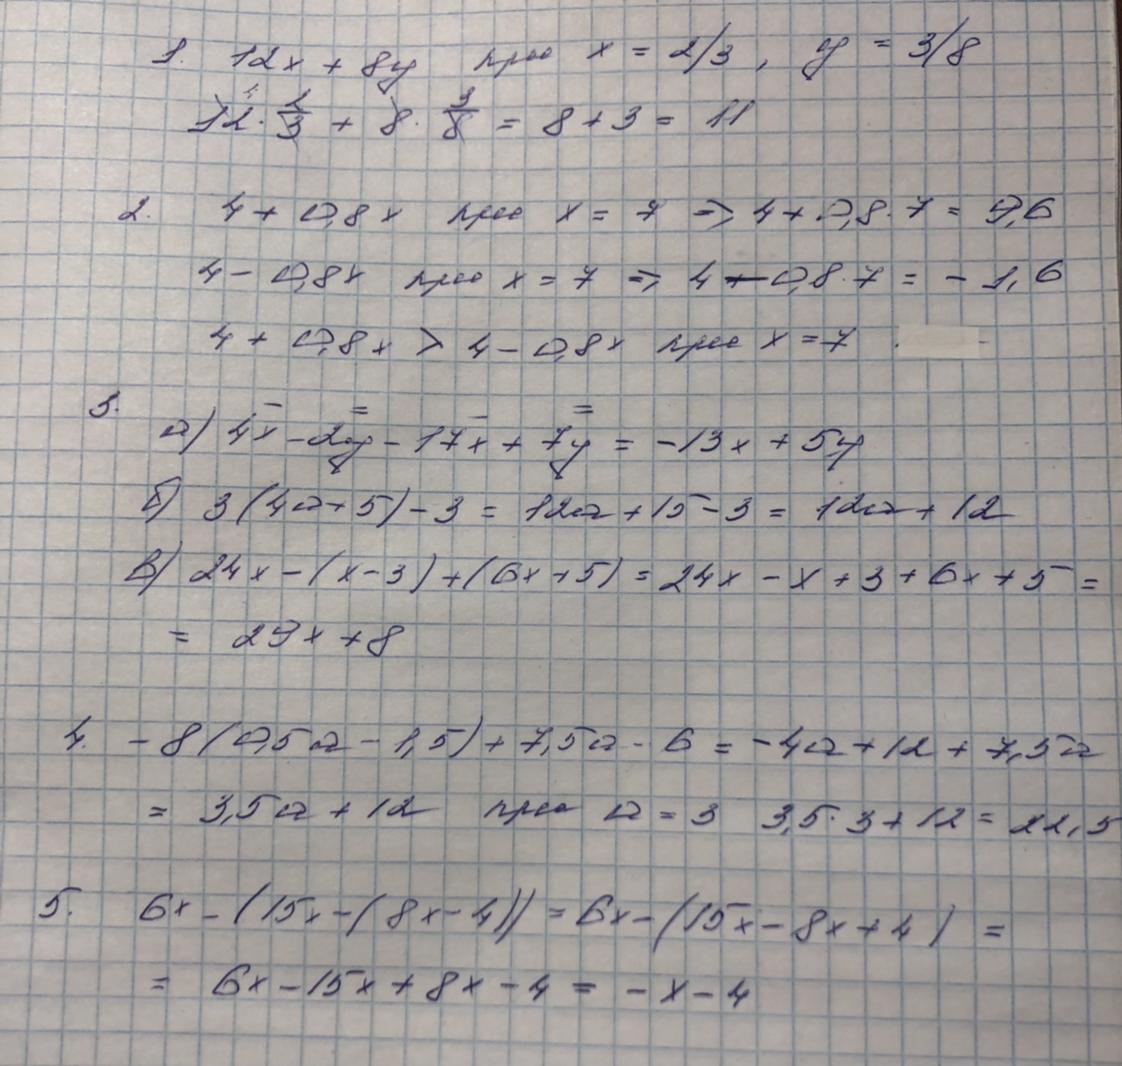 1. 12x + 8y при x = 2/3 , y = 3/8
12 · 2/3 + 8 · 3/8 = 8 + 3 = 11
2. 4 + 0,8x при x = 7 => 4 + 0,8 · 7 = 9,6
4 - 0,8x при x = 7 => 4 - 0,8 · 7 = - 1,6
4 + 0,8x > 4 - 0,8x при x = 7
3.
а) 4x - 2y - 17x + 7y = -13x + 5y
б) 3(4a + 5) - 3 = 12a + 15 - 3 = 12a + 12
в) 24x - (x - 3) + (6x + 5) = 24x - x + 3 + 6x + 5 =
= 29x + 8
4. - 8(0,5a - 1,5) + 7,5a - 6 = -4a + 12 + 7,5a
= 3,5a + 12 при a = 3 3,5 · 3 + 12 = 22,5
5. 6x - (15x - (8x - 4)) = 6x - (15x - 8x + 4) =
= 6x - 15x + 8x - 4 = - x - 4